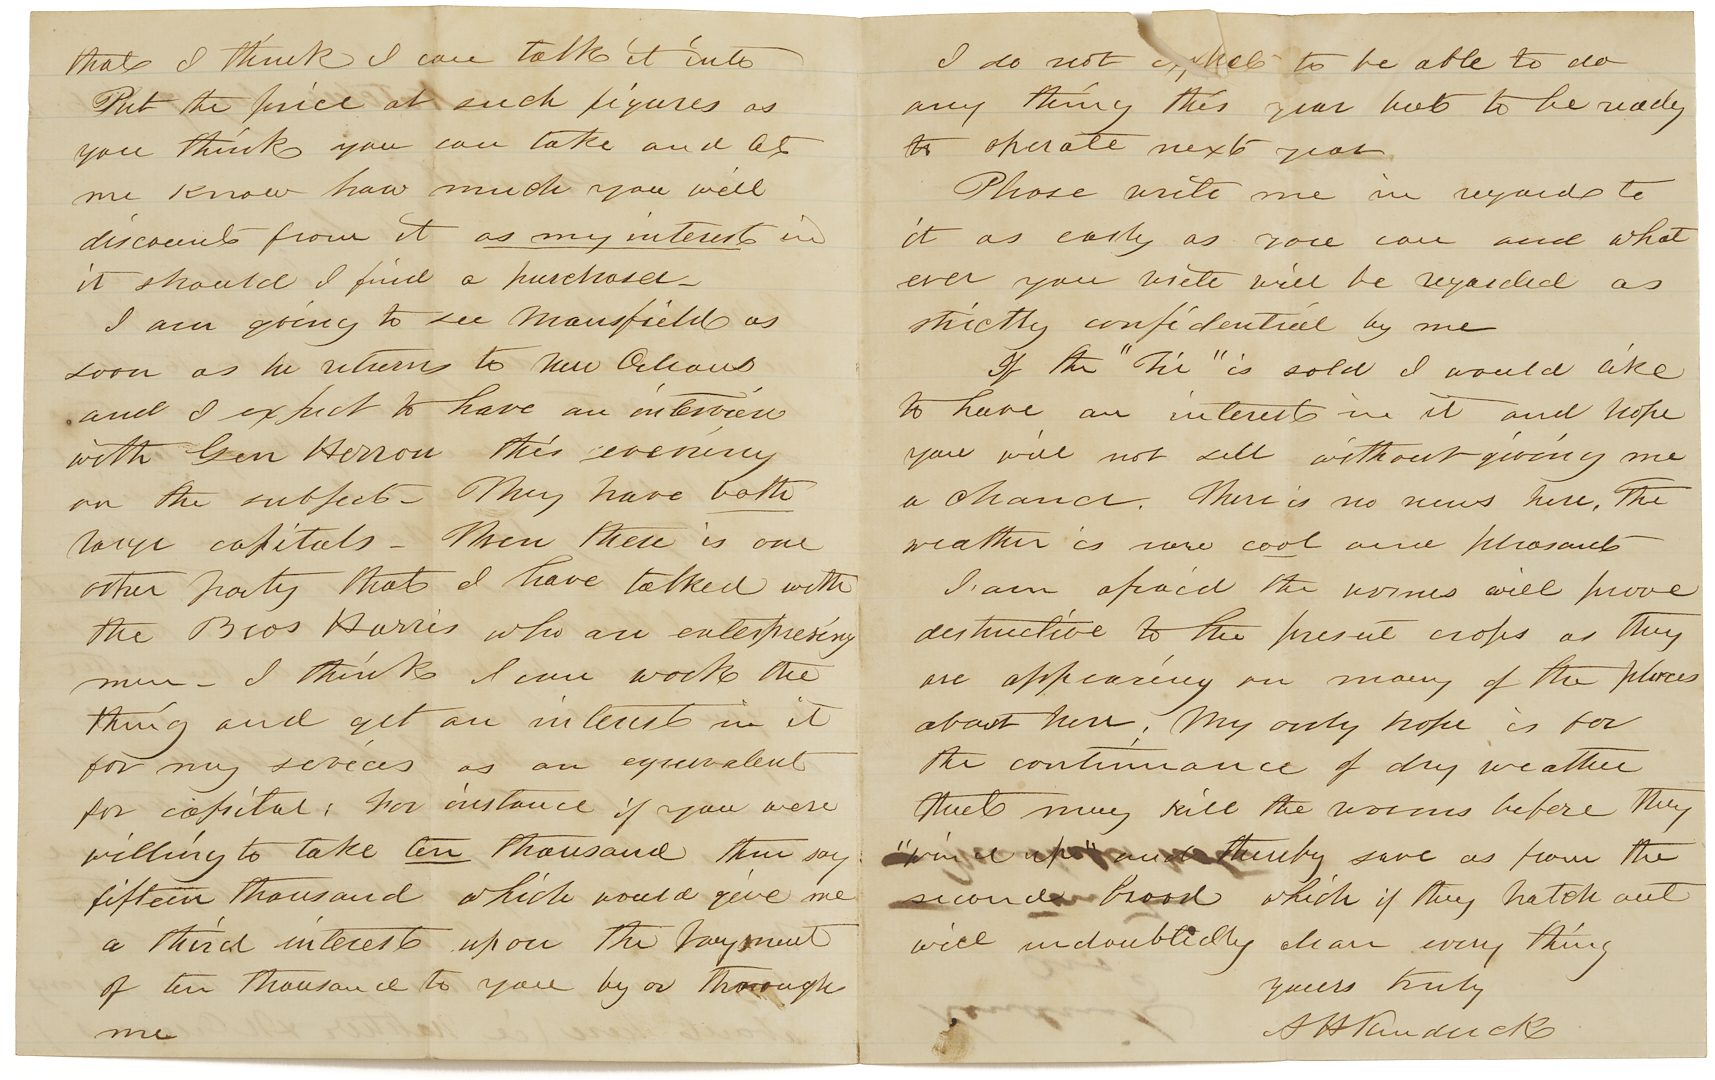 that I think I can talk it into
Put the price at such figures as
you think you can take and let
me know how much you will
discount from it as my interest in
it should I find a purchaser –
I am going to see Mansfield as
soon as he returns to New Orleans
and I expect to have an interview
with Gen Herron this evening
on the subject – They have both
large capitals – Then there is one
other party that I have talked with
the Bros Harris who are enterprising
men – I think I can work the
thing and get an interest in it
for my services as an equivalent
for capital; for instance if you were
willing to take ten thousand then say
fifteen thousand which would give me
a third interest upon the payment
of ten thousand to you by or through
me
I do not expect to be able to do
any thing this year but to be ready
to operate next year
Please write me in regards to
it as early as you can and what
ever you write will be regarded as
strictly confidential by me
If the " " is sold I would like
to have an interest in it and hope
you will not sell without giving me
a chance. There is no news here, The
weather is now cool and pleasant
I am afraid the worms will prove
destructive to the present crops as they
are appearing on many of the places
about here; My only hope is for
the continuance of dry weather
that may kill the worms before they
"wind up" and thereby save us from the
second brood which if they hatch out
will undoubtedly clean every thing
yours truly
A H Kenduck